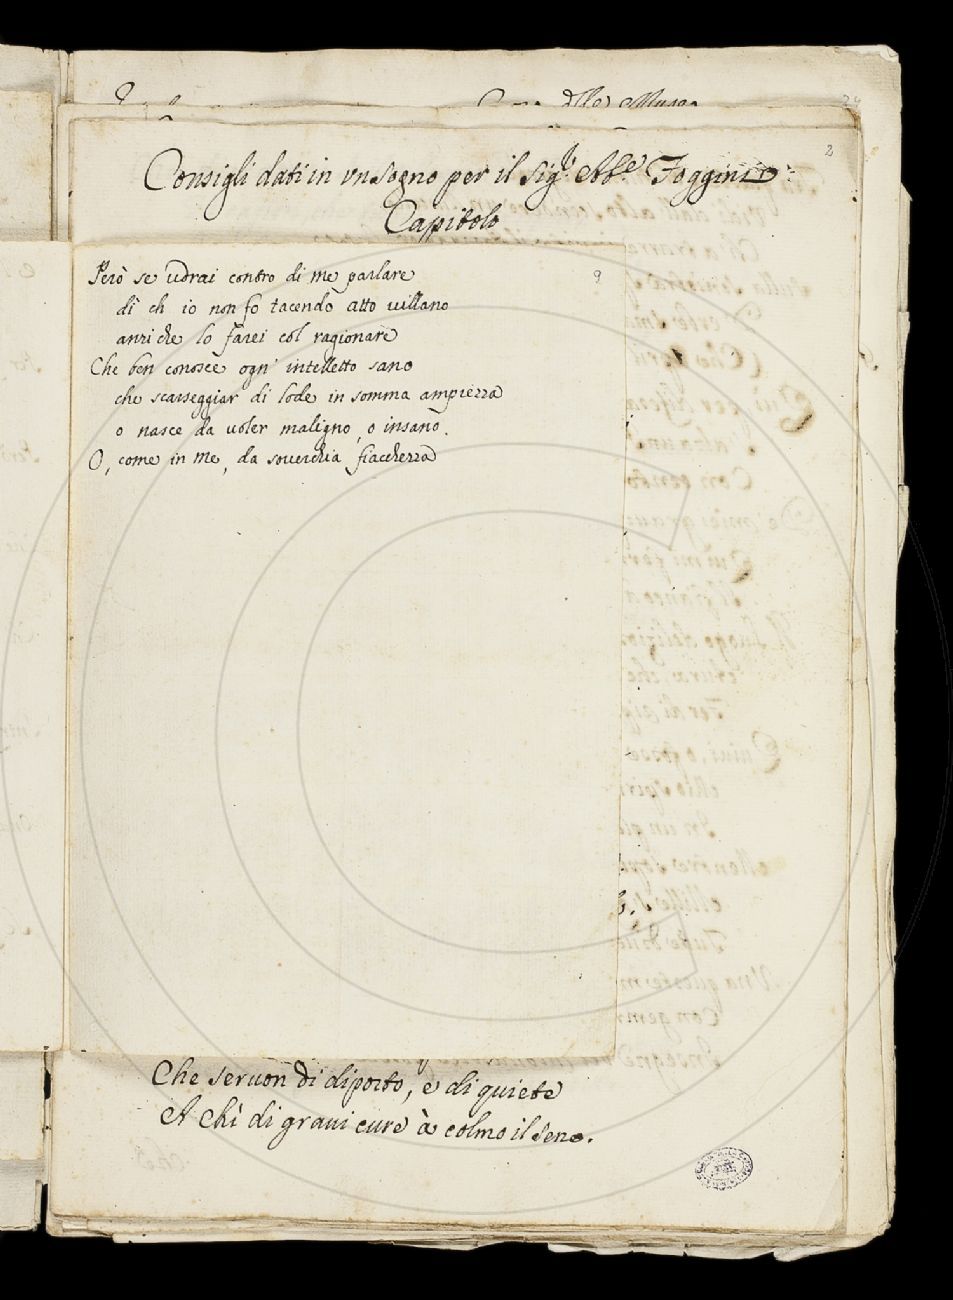 24
2
Consigli dati in vn sogno per il Sig.r Abb.e Foggini
Capitolo
9
Però se udrai contro di me parlare
di ch io non fo tacendo atto uillano
anzi che lo farei col ragionare
Che ben conosce ogn' intelletto sano
che scarseggiar di lode in somma ampiezza
o nasce da uoler maligno, o insano.
O, come in me, da souerchia fiacchezza
Che seruon di diporto, e di quiete
A chi di graui cure à colmo il seno.